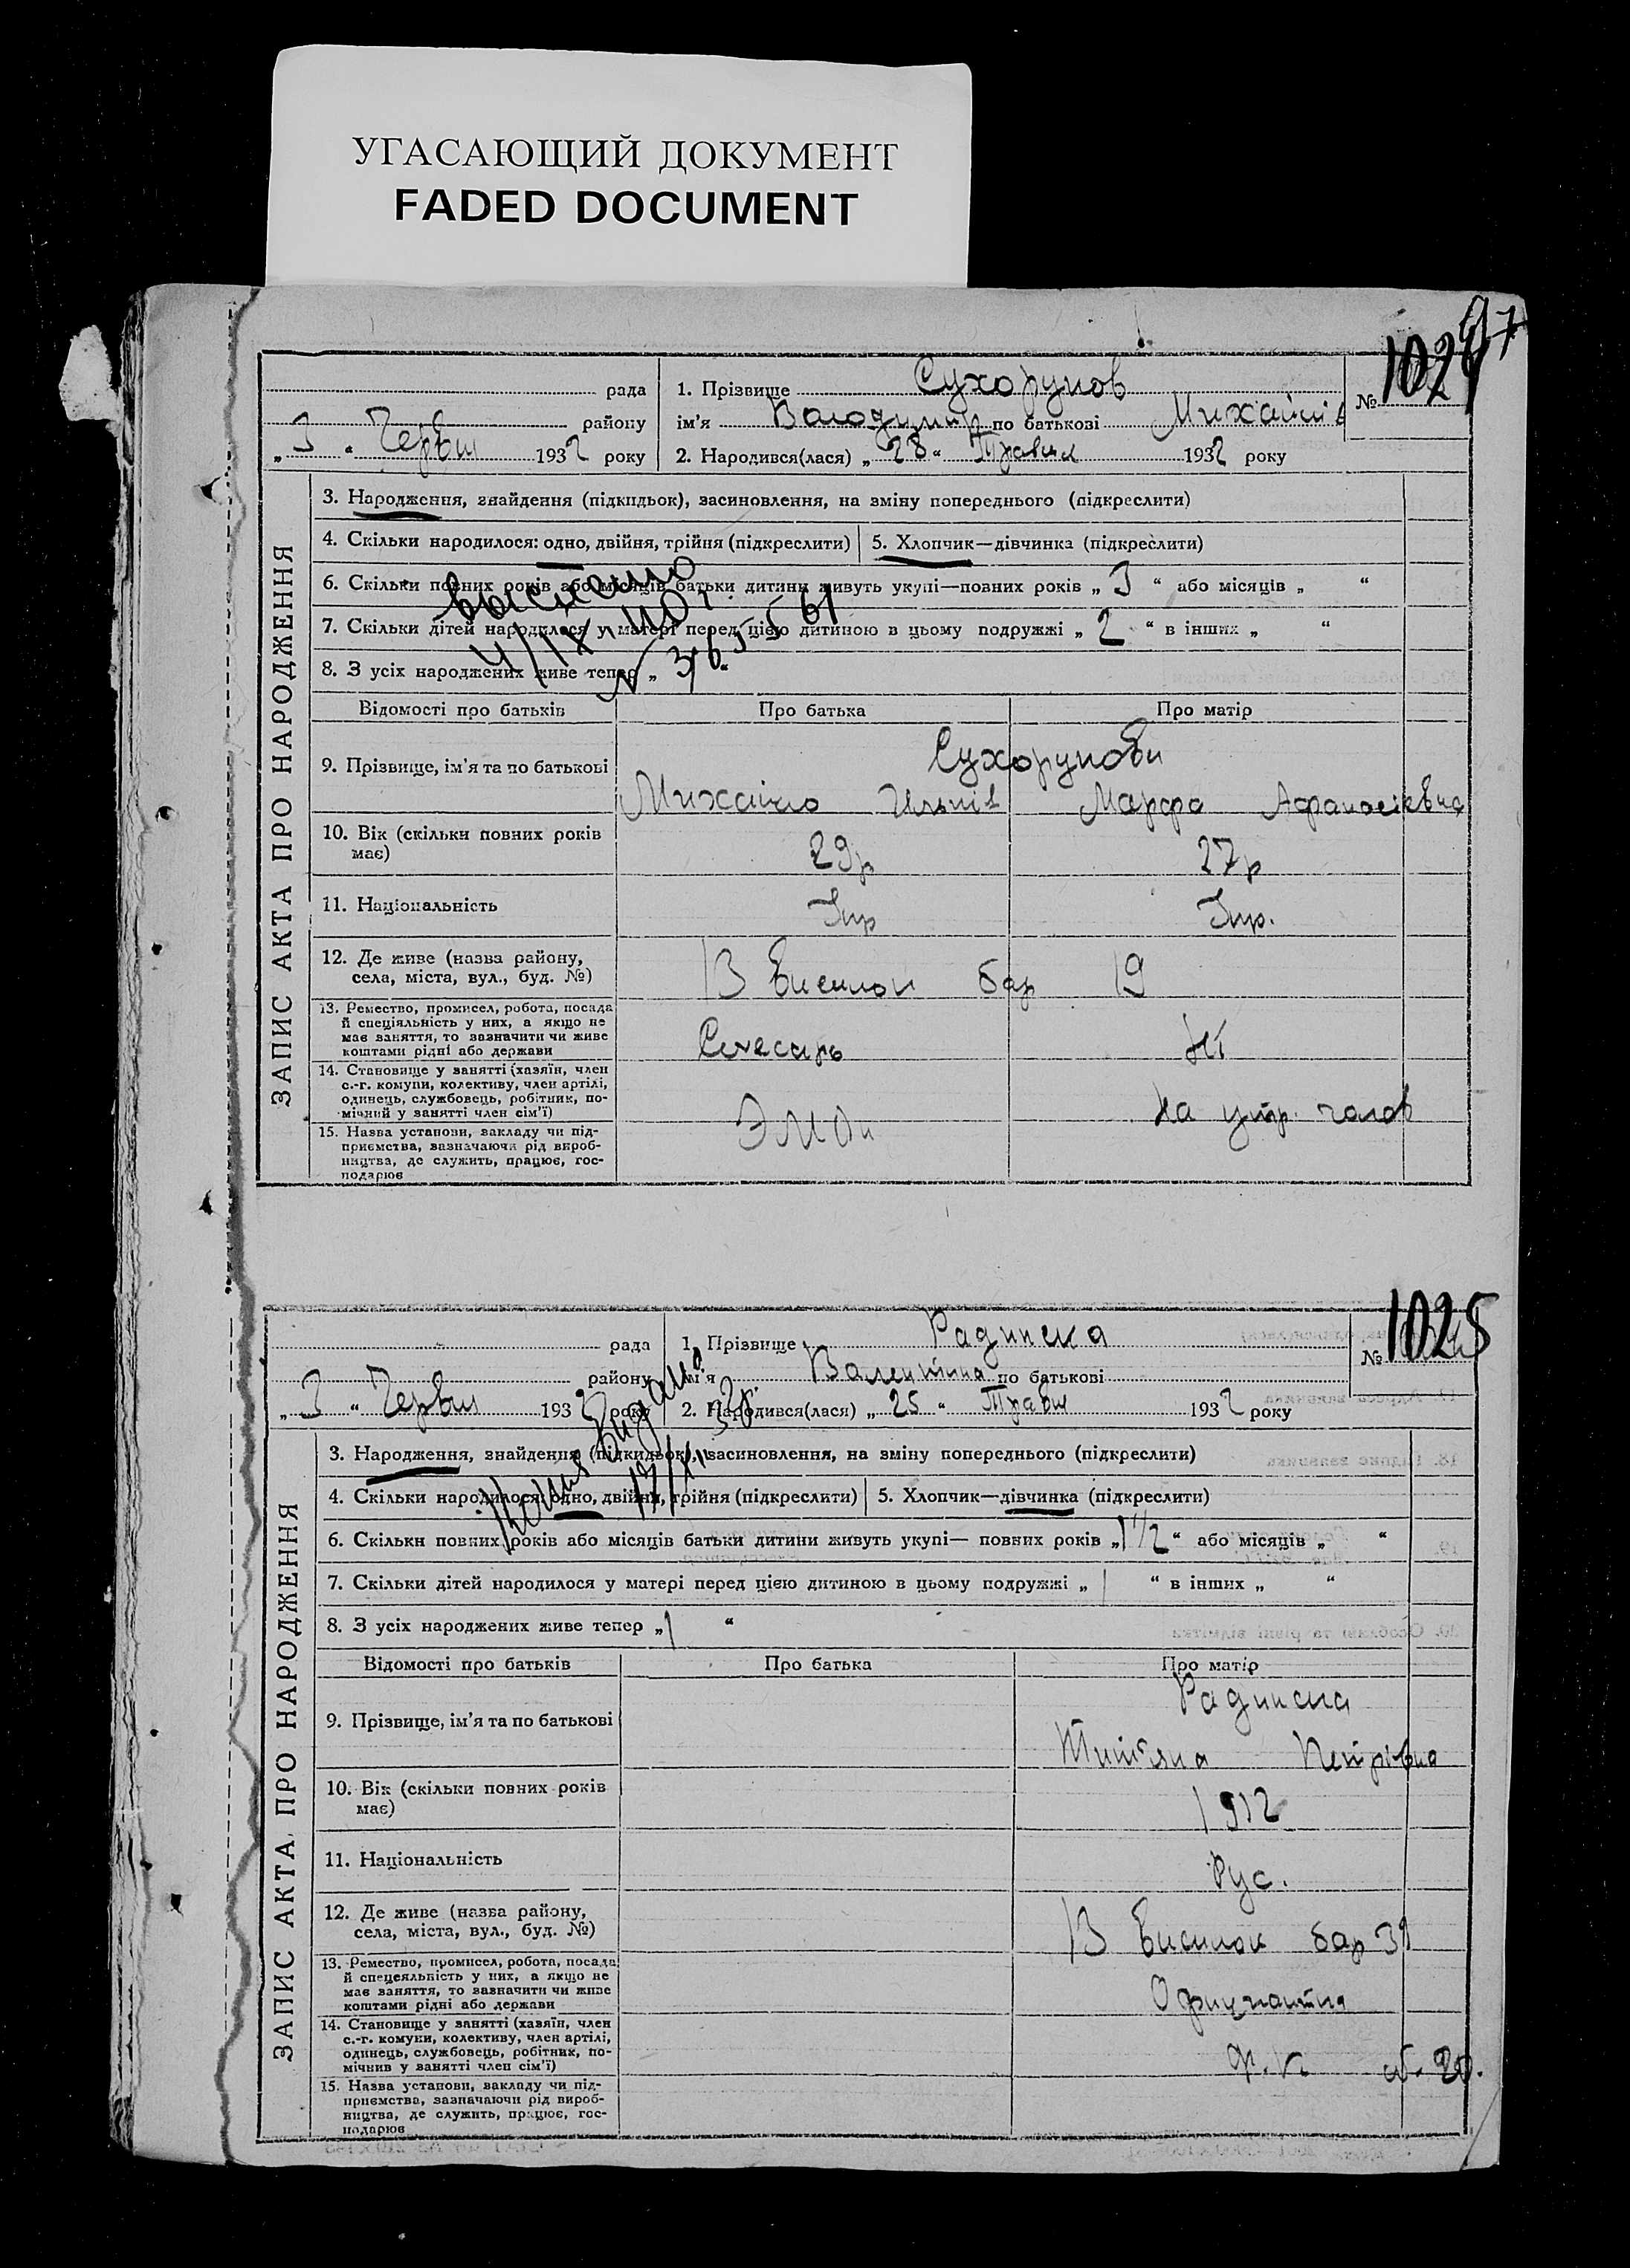 УГАСАЮЩИЙ ДОКУМЕНТ
FADED DOCUMENT
97
рада
1. Прізвище Сухоруков
№ 1024
району
ім’я Володимир по батькові Михайлів
„ 3 “ Червня 1932 року
2. Народився(лася) „ 28 “ Травня 1932 року
ЗАПИС АКТА ПРО НАРОДЖЕННЯ
3. Народження, знайдення (підкидьок), засиновлення, на зміну попереднього (підкреслити)
4. Скільки народилося: одно, двійня, трійня (підкреслити)
5. Хлопчик—дівчинка (підкреслити)
6. Скільки повних років або місяців батьки дитини живуть укупі—повних років „ 3 “ або місяців „ “
7. Скільки дітей народилося у матері перед цією дитиною в цьому подружжі „ 2 “ в інших „ “
8. З усіх народжених живе тепер „ “
4/IX-40
Відомості про батьків
Про батька
Про матір
9. Прізвище, ім’я та по батькові
Сухорукови
Михайло
Марфа Афанасіевна
10. Вік (скільки повних років має)
29р
27р
11. Національність
Укр
Укр.
12. Де живе (назва району, села, міста, вул., буд. №)
В висилок бар 19
13. Ремество, промисел, робота, посада
й спеціяльність у них, а якщо не
має заняття, то зазначити чи живе
коштами рідні або держави
Слесарь
14. Становище у занятті (хазяїн, член
с.-г. комуни, колективу, член артілі,
одинець, службовець, робітник, по-
мічний у занятті член сім’ї)
на утр. чолов
15. Назва установи, закладу чи під-
приємства, зазначаючи рід вироб-
ництва, де служить, працює, гос-
подарює
рада
1. Прізвище Радинска
№ 1025
району
ім’я Валентина по батькові
„ 3 “ Червня 1932 року
2. Народився(лася) „ 25 “ Травня 1932 року
ЗАПИС АКТА ПРО НАРОДЖЕННЯ
3. Народження, знайдення (підкидьок), засиновлення, на зміну попереднього (підкреслити)
4. Скільки народилося: одно, двійня, трійня (підкреслити)
5. Хлопчик—дівчинка (підкреслити)
6. Скільки повних років або місяців батьки дитини живуть укупі— повних років „ 1 1/2 “ або місяців „ “
7. Скільки дітей народилося у матері перед цією дитиною в цьому подружжі „ 1 “ в інших „ “
8. З усіх народжених живе тепер „ 1 “
Відомості про батьків
Про батька
Про матір
9. Прізвище, ім’я та по батькові
Радинска
Петрівна
10. Вік (скільки повних років має)
1912
11. Національність
Рус.
12. Де живе (назва району, села, міста, вул., буд. №)
В висилок бар 39
13. Ремество, промисел, робота, посада
й спецеяльність у них, а якщо не
має заняття, то зазначити чи живе
коштами рідні або держави
Официантка
14. Становище у занятті (хазяїн, член
с.-г. комуни, колективу, член артілі,
одинець, службовець, робітник, по-
мічнив у занятті член сім’ї)
15. Назва установи, закладу чи під-
приємства, зазначаючи рід вироб-
ництва, де служить, працює, гос-
подарює